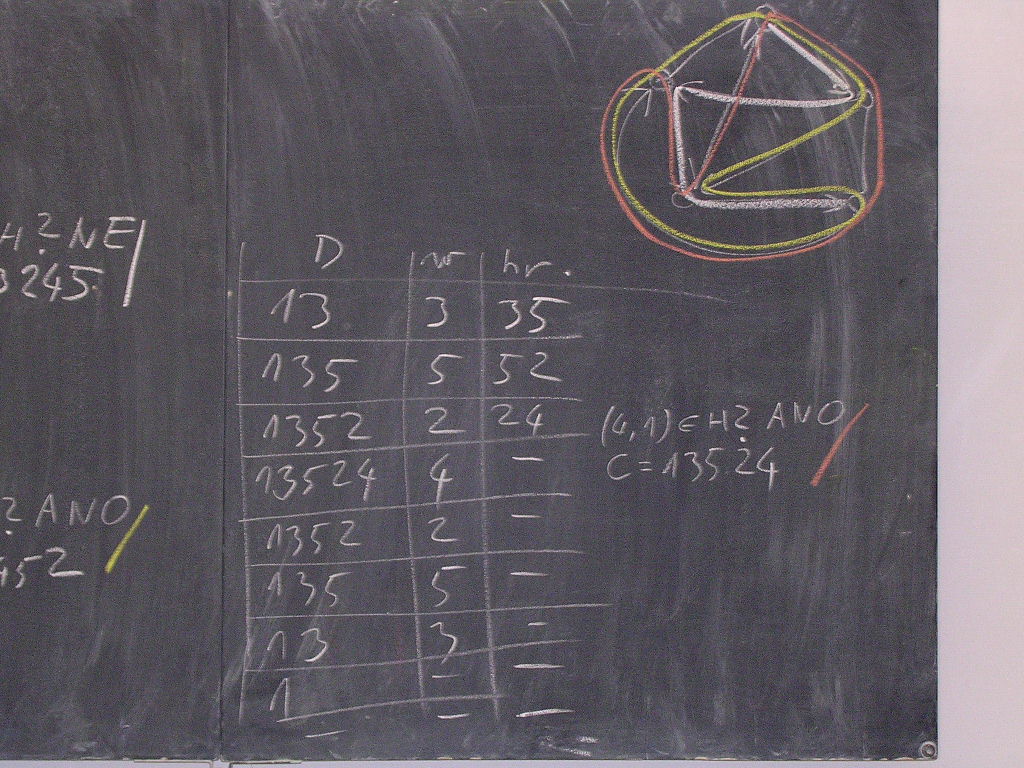 H? NE
245
? ANO
452
D w hr.
13 3 35
135 5 52
1352 2 24
13524 4 –
1352 2 –
135 5 –
13 3 –
1 – –
– – –
(4,1) ∈ H? ANO
C = 13524